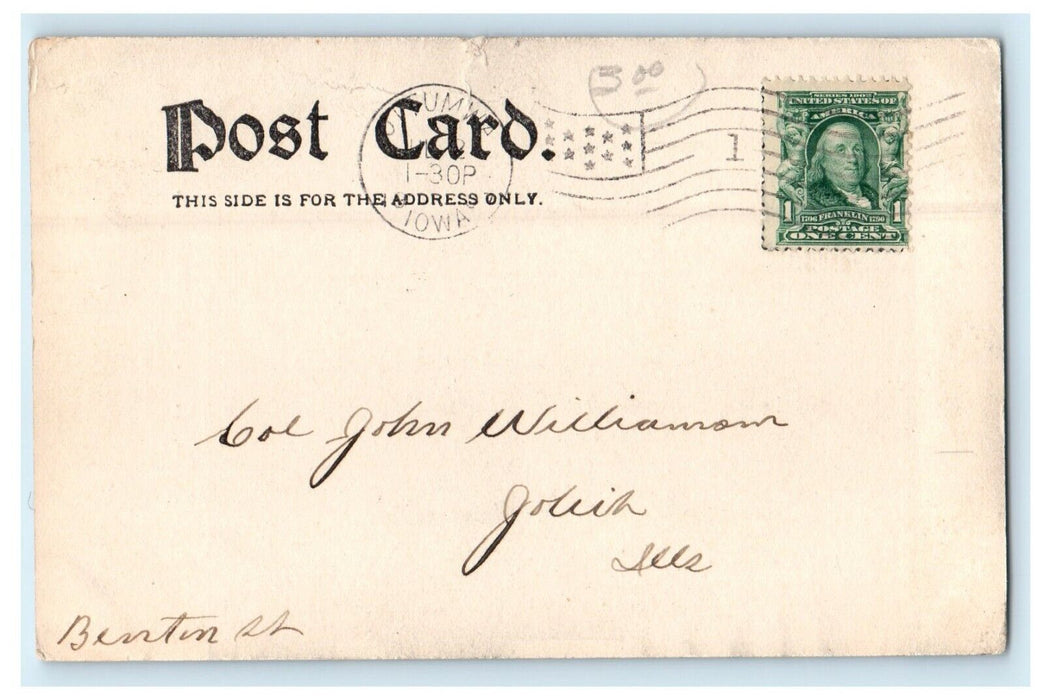 Post Card.
THIS SIDE IS FOR THE ADDRESS ONLY.
OTTUMWA
1-30P
IOWA
3 00
1
SERIES 1902
UNITED STATES OF
AMERICA
1 1706 FRANKLIN 1790 1
POSTAGE
ONE CENT
Col John Williamson
Joliet
Ills
Benton St